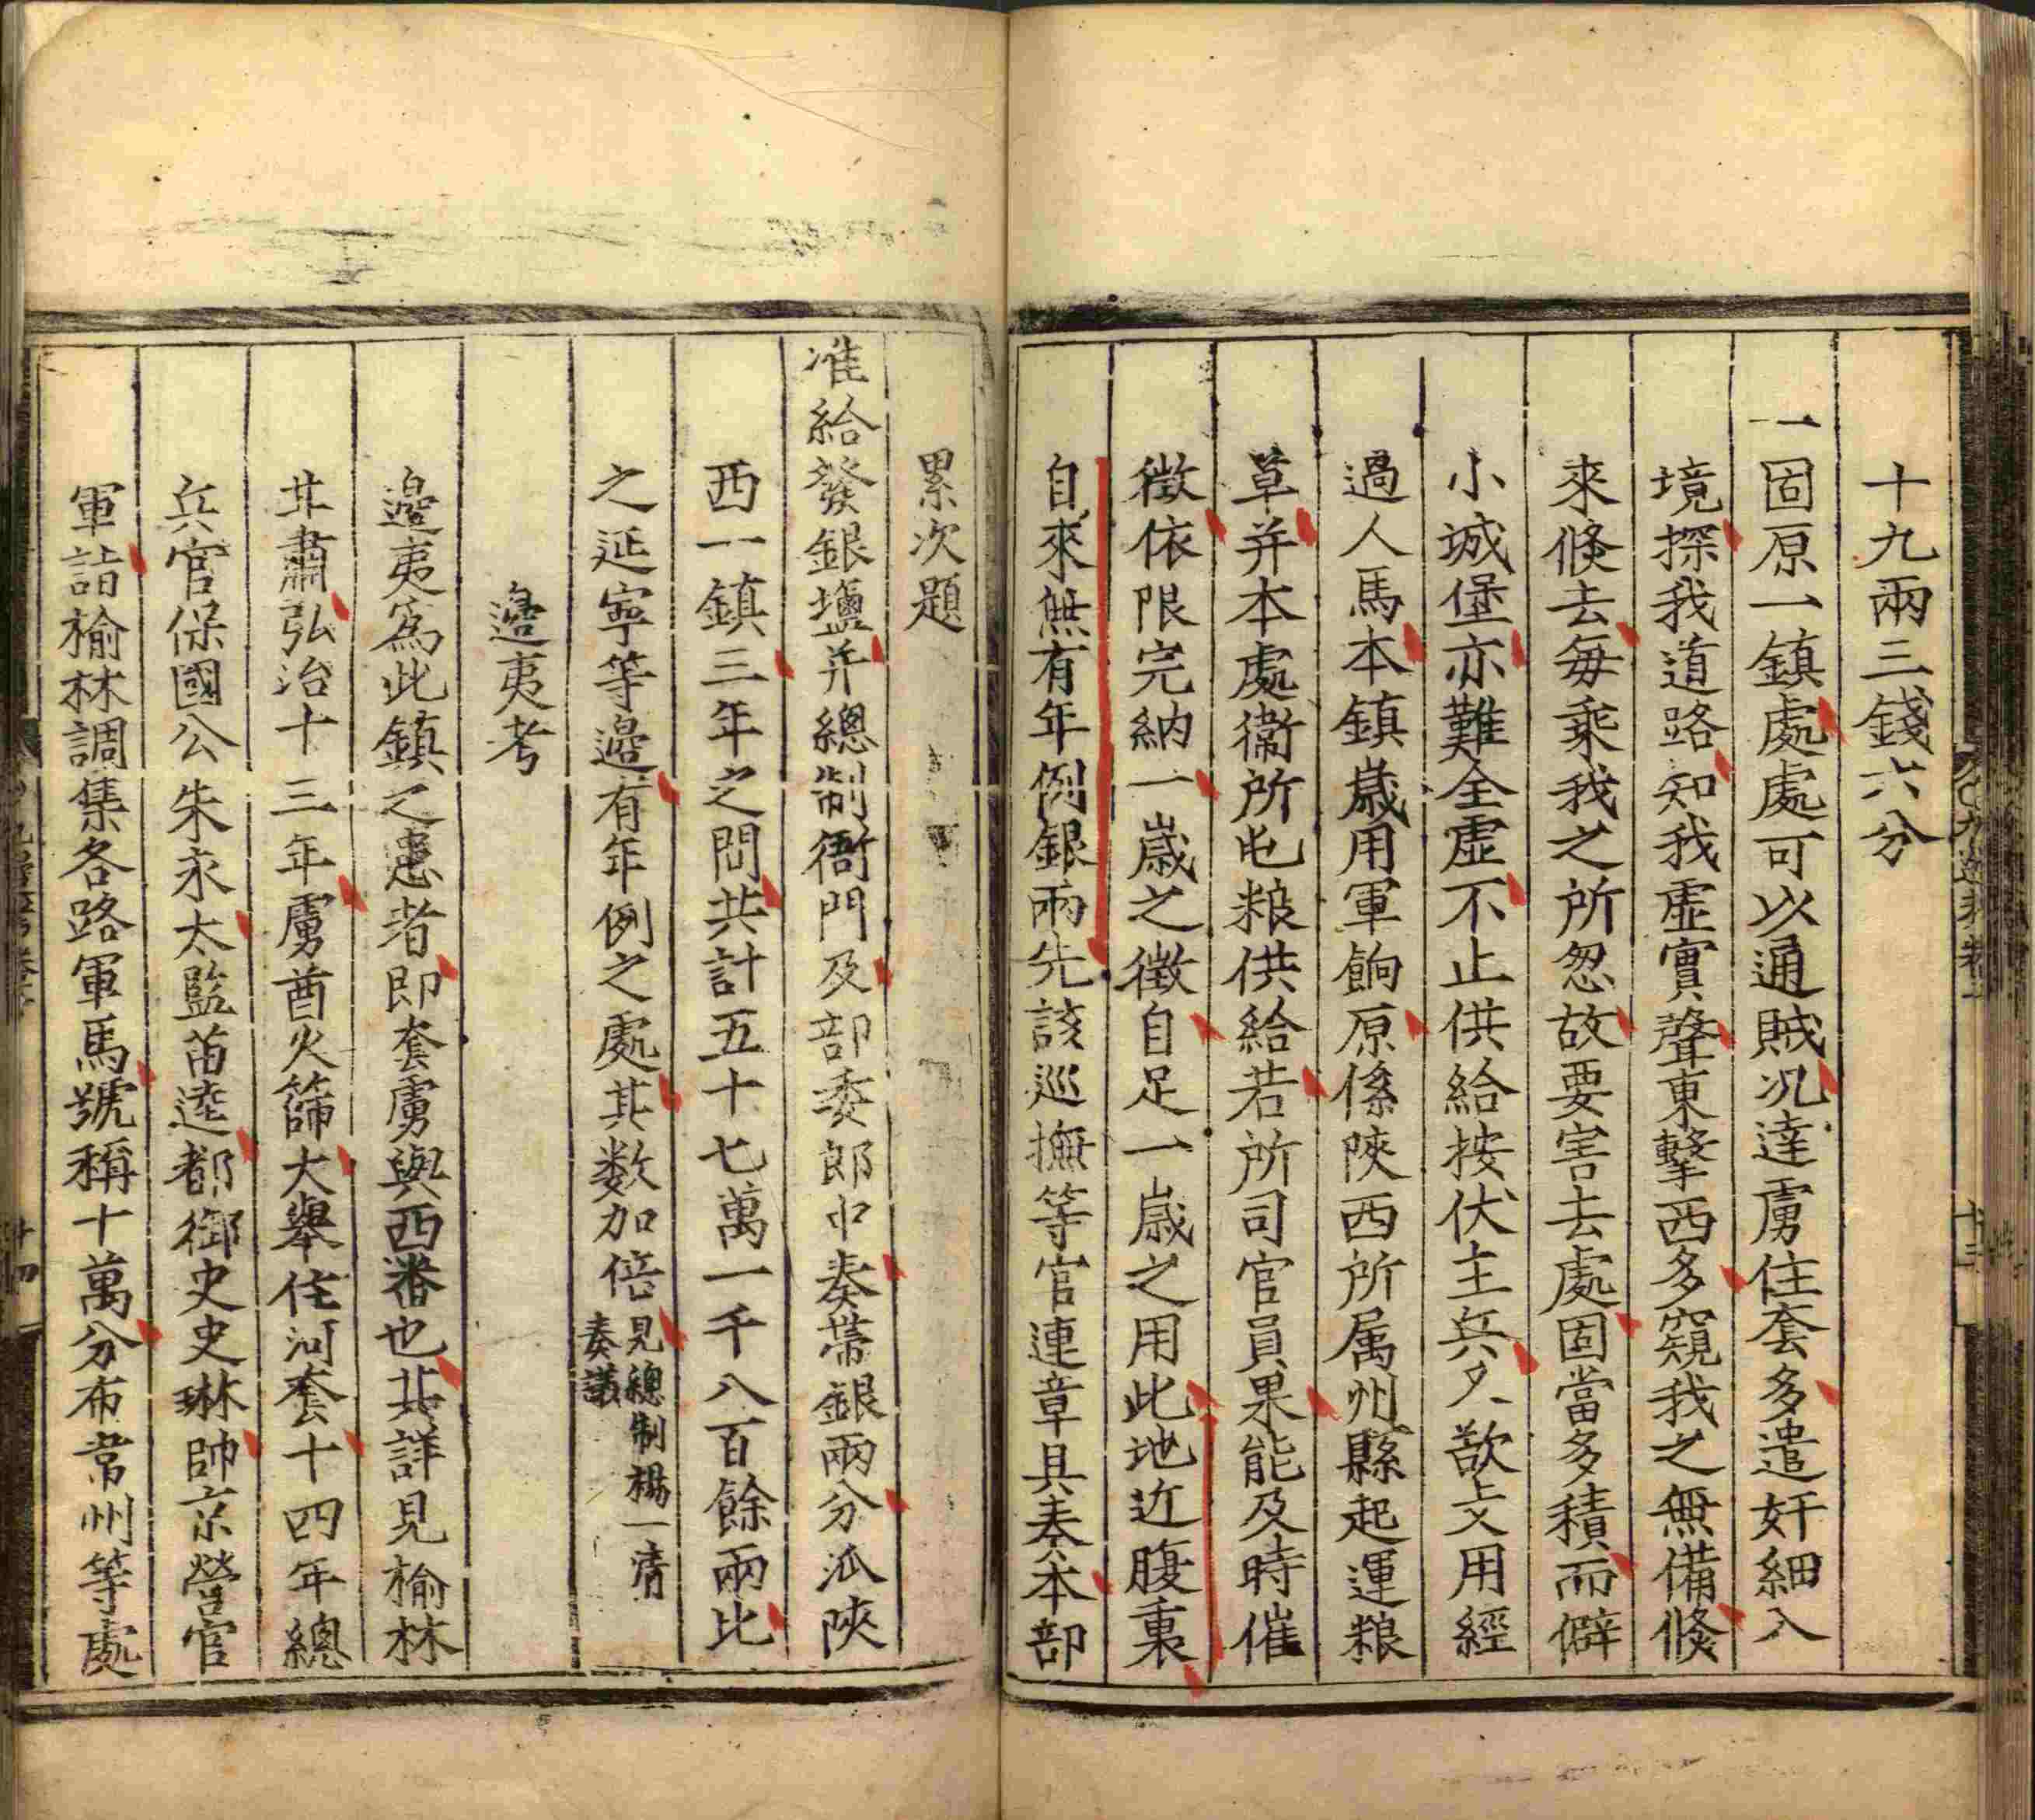 十九兩三錢六分
一固原一鎮處處可以通賊况達虜住套多遣奸細入
境探我道路知我虛實聲東擊西多窺我之無備倐
來倐去每乘我之所忽故要害去處固當多積而僻
小城堡亦難全虛不止供給按伏主兵久欲支用經
過人馬本鎮歲用軍餉原係陝西所属州縣起運粮
草并本處衞所屯粮供給若所司官員果能及時催
徵依限完納一歲之徵自足一歲之用此地近腹裏
自來無有年例銀兩先該巡撫等官連章具奏本部
累次題
准給發銀鹽并總制衙門及部委郎中奏帶銀兩分派陝
西一鎮三年之間共計五十七萬一千八百餘兩比
之延寧等邊有年例之處其数加倍見總制楊一清奏議
邊夷考
邊夷爲此鎮之患者即套虜與西番也北詳見榆林
甘肅弘治十三年虜酋火篩大舉住河套十四年總
兵官保國公朱永太監苗逵都御史史琳帥京營官
軍詣榆林調集各路軍馬號稱十萬分布常州等處